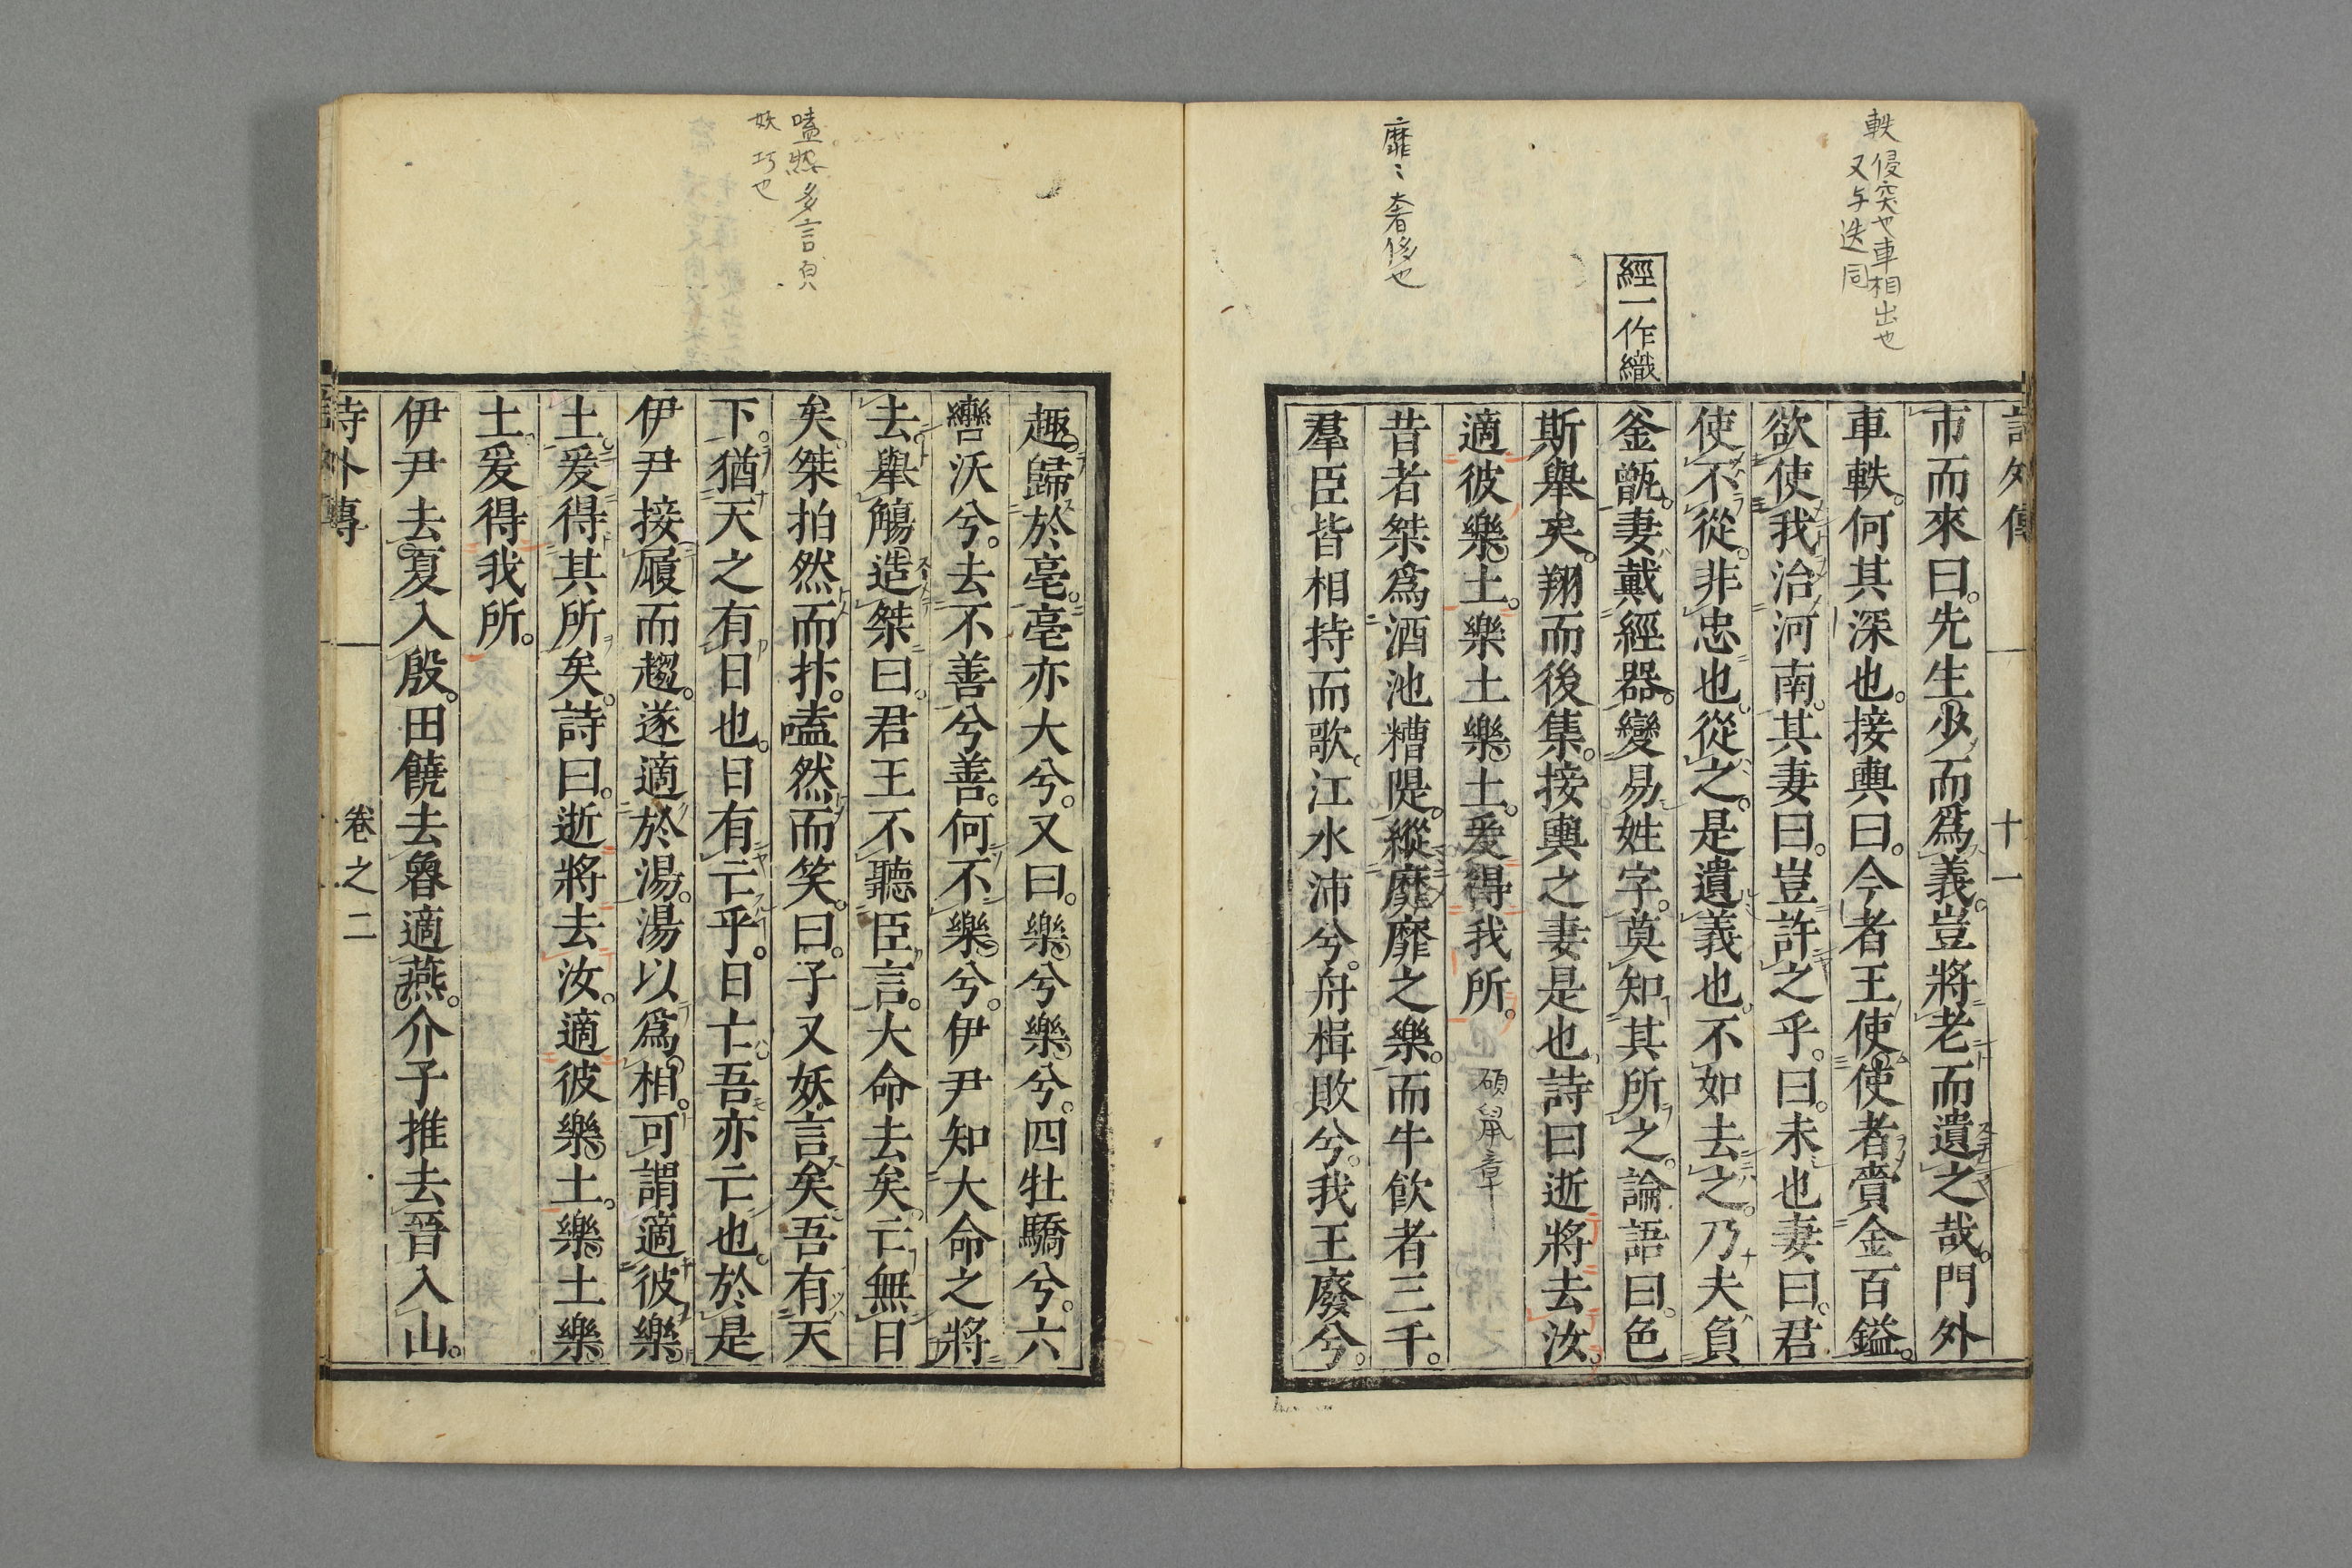 軼 侵突也車相出也
又与迭同
經一作織
靡〻奢侈也
詩外傳 十一
市而來曰先生少而爲義豈將老而遺之哉門外
車軼何其深也接輿曰今者王使使者賫金百鎰
欲使我治河南其妻曰豈許之乎曰未也妻曰君
使不從非忠也從之是遺義也不如去之乃夫負
釜甑妻戴經器變易姓字莫知其所之論語曰色
斯舉矣翔而後集接輿之妻是也詩曰逝將去汝
適彼樂土樂土樂土爰得我所
碩鼠章
昔者桀爲酒池糟隄縱靡靡之樂而牛飮者三千
羣臣皆相持而歌江水沛兮舟楫敗兮我王廢兮
嗑然多言皃
妖 巧也
趣歸於亳亳亦大兮又曰樂兮樂兮四牡驕兮六
轡沃兮去不善兮善何不樂兮伊尹知大命之將
去舉觴造桀曰君王不聽臣言大命去矣亡無日
矣桀拍然而抃嗑然而笑曰子又妖言矣吾有天
下猶天之有日也日有亡乎日亡吾亦亡也於是
伊尹接履而趨遂適於湯湯以爲相可謂適彼樂
土爰得其所矣詩曰逝將去汝適彼樂土樂土樂
土爰得我所
伊尹去夏入殷田饒去魯適燕介子推去晉入山
詩外傳 卷之二